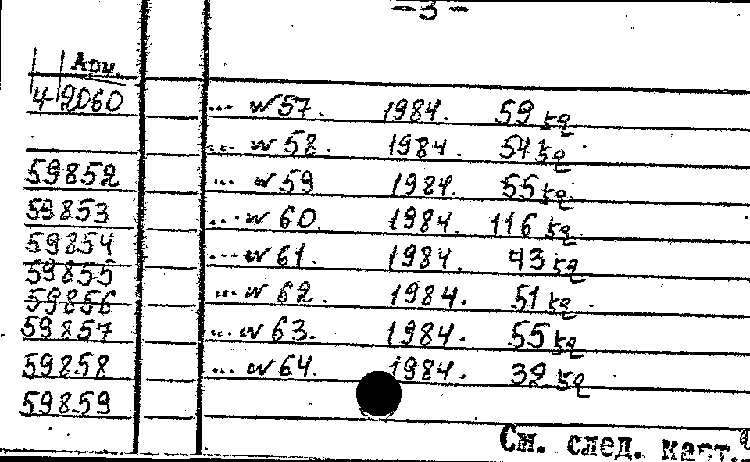 – 3 –
Арм.
4-2060 ... N 57. 1984. 59 kg
... N 58. 1984. 54 kg
59852 ... N 59 1984. 55 kg
59853 ... N 60. 1984. 116 kg
59854 ... N 61. 1984. 43 kg
59855
59856 ... N 62. 1984. 51 kg
59857 ... N 63. 1984. 55 kg
59858 ... N 64. 1984. 39 kg
59859
См. след. карт.